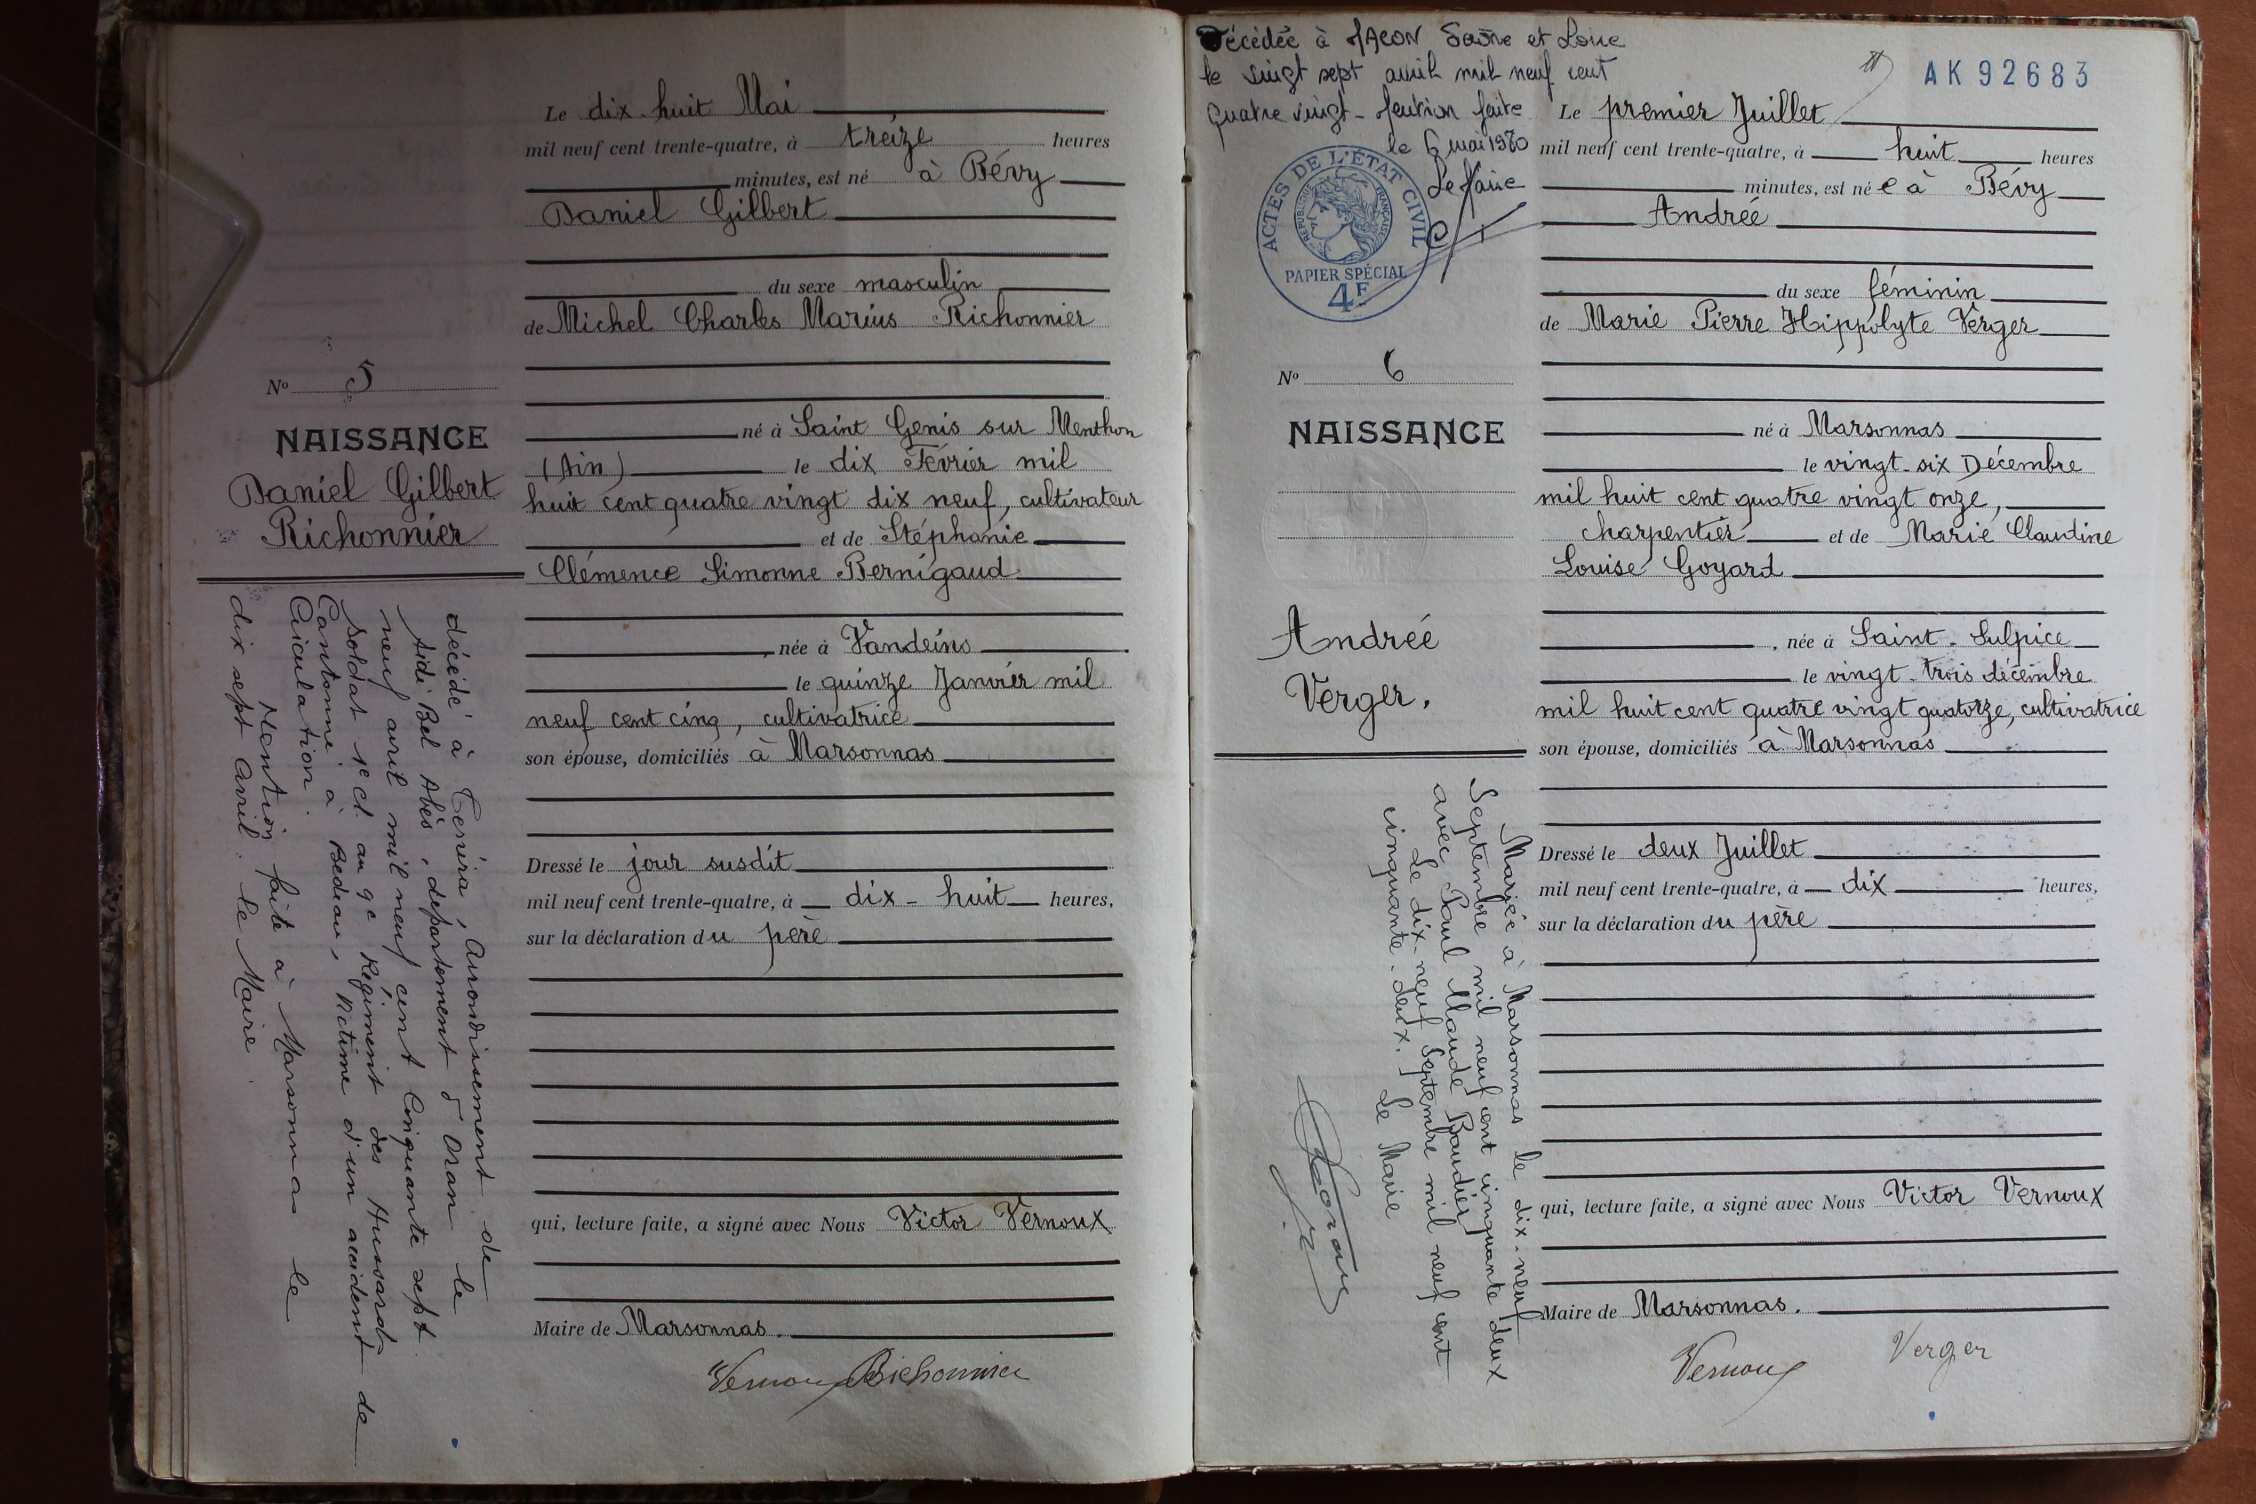 Le dix-huit Mai
mil neuf cent trente-quatre, à treize heures
minutes, est né à Bévy
Daniel Gilbert
du sexe masculin
de Michel Charles Marius Richonnier
né à Saint Genis sur Menthon
(Ain) le dix Février mil
huit cent quatre vingt dix neuf, cultivateur
et de Stéphanie
Clémence Simonne Bernigaud
, née à Vandeins
le quinze Janvier mil
neuf cent cinq, cultivatrice
son épouse, domiciliés à Marsonnas
Dressé le jour susdit
mil neuf cent trente-quatre, à dix-huit heures,
sur la déclaration du père
qui, lecture faite, a signé avec Nous Victor Vernoux
Maire de Marsonnas.
Vernoux Richonnier
No 5
NAISSANCE
Daniel Gilbert
Richonnier
décédé à Ténira, Arrondissement de
Sidi Bel Abès, département d'Oran le
neuf avril mil neuf cent cinquante sept
Soldat 1e cl au 9e Régiment des Hussards
Cantonné à Bedeau, Victime d'un accident de
Circulation.
Mention faite à Marsonnas le
dix sept Avril. le Maire.
Décédée à MACON Saône et Loire
le vingt sept avril mil neuf cent
quatre vingt - Mention faite
le 6 mai 1980
Le Maire
ACTES DE L'ÉTAT CIVIL
RÉPUBLIQUE FRANÇAISE
PAPIER SPÉCIAL
4F
AK92683
Le premier Juillet
mil neuf cent trente-quatre, à huit heures
minutes, est née à Bévy
Andrée
du sexe féminin
de Marie Pierre Hippolyte Verger
né à Marsonnas
le vingt-six Décembre
mil huit cent quatre vingt onze,
charpentier et de Marie Claudine
Louise Goyard
, née à Saint-Sulpice
le vingt-trois décembre
mil huit cent quatre vingt quatorze, cultivatrice
son épouse, domiciliés à Marsonnas
Dressé le deux Juillet
mil neuf cent trente-quatre, à dix heures,
sur la déclaration du père
qui, lecture faite, a signé avec Nous Victor Vernoux
Maire de Marsonnas.
Vernoux Verger
No 6
NAISSANCE
Andrée
Verger.
Mariée à Marsonnas le dix-neuf
Septembre mil neuf cent cinquante deux
avec Paul Claude Baudier
Le dix-neuf Septembre mil neuf cent
cinquante-deux. Le Maire